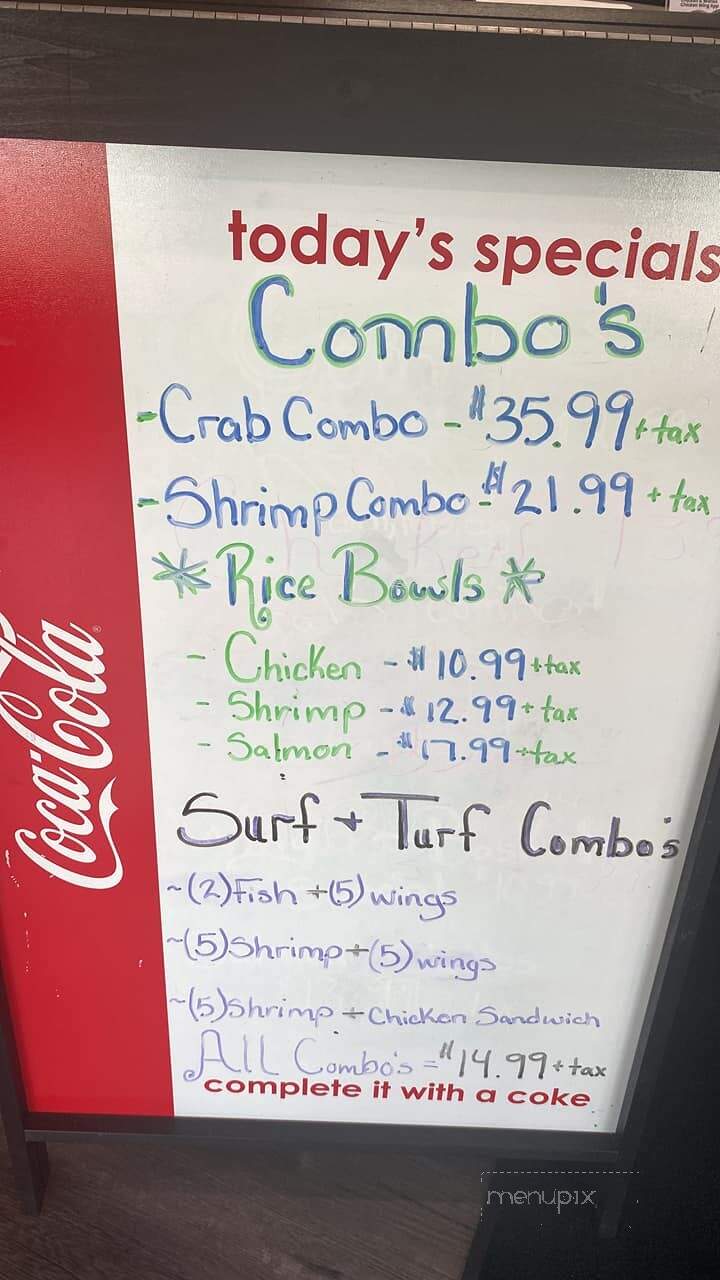 today's specials
Combo's
- Crab Combo - $35.99 + tax
- Shrimp Combo - $21.99 + tax
* Rice Bowls *
- Chicken - $10.99 + tax
- Shrimp - $12.99 + tax
- Salmon - $17.99 + tax
Surf + Turf Combo's
~(2) Fish + (5) wings
~(5) Shrimp + (5) wings
~(5) Shrimp + Chicken Sandwich
All Combo's = $14.99 + tax
complete it with a coke
Coca-Cola
menupix